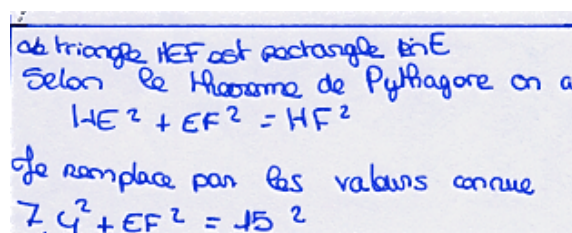 Le triangle HEF est rectangle en E
Selon le theoreme de Pythagore on a
HE² + EF² = HF²
Je remplace par les valeurs connue
7,4² + EF² = 15²